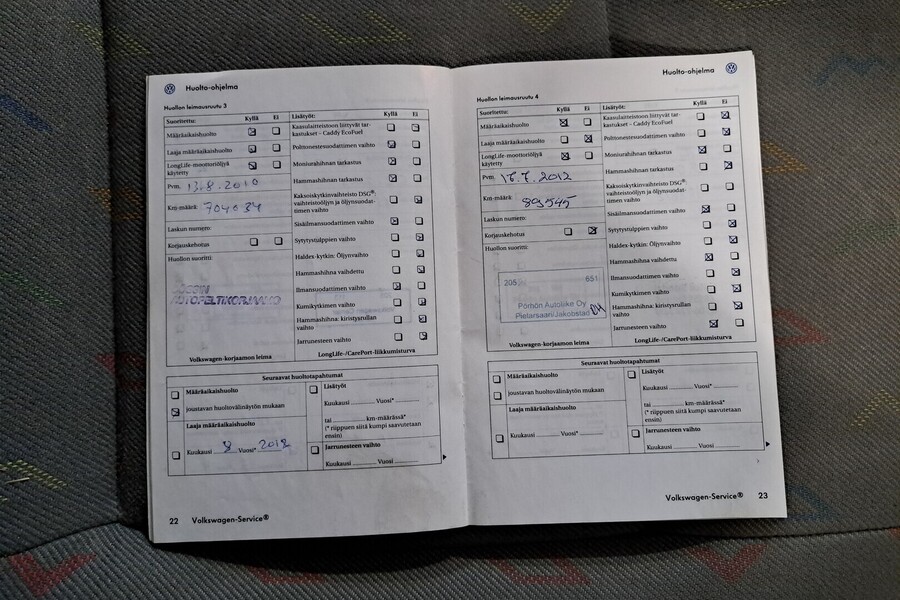 Huolto-ohjelma
Huollon leimausruutu 3
Suoritettu: Kyllä Ei
Määräaikaishuolto
Laaja määräaikaishuolto
LongLife-moottoriöljyä
käytetty
Pvm. 13.8.2010
Km-määrä:
Laskun numero:
Korjauskehotus
Huollon suoritti:
Volkswagen-korjaamon leima
Lisätyöt: Kyllä Ei
Kaasulaitteistoon liittyvät tar-
kastukset – Caddy EcoFuel
Polttonestesuodattimen vaihto
Moniurahihnan tarkastus
Hammashihnan tarkastus
Kaksoiskytkinvaihteisto DSG®:
vaihteistoöljyn ja öljynsuodat-
timen vaihto
Sisäilmansuodattimen vaihto
Sytytystulppien vaihto
Haldex-kytkin: Öljynvaihto
Hammashihna vaihdettu
Ilmansuodattimen vaihto
Kumikytkimen vaihto
Hammashihna: kiristysrullan
vaihto
Jarrunesteen vaihto
LongLife-/CarePort-liikkumisturva
Seuraavat huoltotapahtumat
Määräaikaishuolto
joustavan huoltovälinäytön mukaan
Laaja määräaikaishuolto
Kuukausi 8 Vuosi* 2012
Lisätyöt
Kuukausi Vuosi*
tai km-määrässä*
(* riippuen siitä kumpi saavutetaan
ensin)
Jarrunesteen vaihto
Kuukausi Vuosi
22 Volkswagen-Service®
Huolto-ohjelma
Huollon leimausruutu 4
Suoritettu: Kyllä Ei
Määräaikaishuolto
Laaja määräaikaishuolto
LongLife-moottoriöljyä
käytetty
Pvm. 17.7.2012
Km-määrä: 89545
Laskun numero:
Korjauskehotus
Huollon suoritti:
205 651
Pörhön Autoliike Oy
Pietarsaari/Jakobstad
Volkswagen-korjaamon leima
Lisätyöt: Kyllä Ei
Kaasulaitteistoon liittyvät tar-
kastukset – Caddy EcoFuel
Polttonestesuodattimen vaihto
Moniurahihnan tarkastus
Hammashihnan tarkastus
Kaksoiskytkinvaihteisto DSG®:
vaihteistoöljyn ja öljynsuodat-
timen vaihto
Sisäilmansuodattimen vaihto
Sytytystulppien vaihto
Haldex-kytkin: Öljynvaihto
Hammashihna vaihdettu
Ilmansuodattimen vaihto
Kumikytkimen vaihto
Hammashihna: kiristysrullan
vaihto
Jarrunesteen vaihto
LongLife-/CarePort-liikkumisturva
Seuraavat huoltotapahtumat
Määräaikaishuolto
joustavan huoltovälinäytön mukaan
Laaja määräaikaishuolto
Kuukausi Vuosi*
Lisätyöt
Kuukausi Vuosi*
tai km-määrässä*
(* riippuen siitä kumpi saavutetaan
ensin)
Jarrunesteen vaihto
Kuukausi Vuosi
Volkswagen-Service® 23